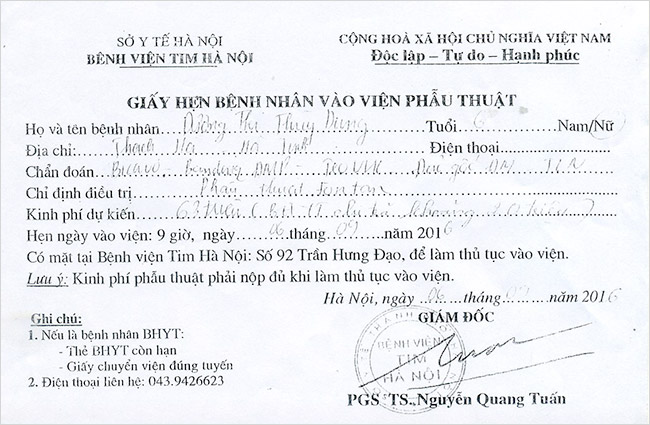 SỞ Y TẾ HÀ NỘI
BỆNH VIỆN TIM HÀ NỘI
CỘNG HOÀ XÃ HỘI CHỦ NGHĨA VIỆT NAM
Độc lập – Tự do – Hạnh phúc
GIẤY HẸN BỆNH NHÂN VÀO VIỆN PHẪU THUẬT
Họ và tên bệnh nhân Thị Thuỳ Dung Tuổi 6 Nam/Nữ
Địa chỉ: Thạch Hà Hà Tĩnh Điện thoại
Chẩn đoán
Chỉ định điều trị Phẫu thuật
Kinh phí dự kiến 63 triệu
Hẹn ngày vào viện: 9 giờ, ngày 06 tháng 09 năm 2016
Có mặt tại Bệnh viện Tim Hà Nội: Số 92 Trần Hưng Đạo, để làm thủ tục vào viện.
Lưu ý: Kinh phí phẫu thuật phải nộp đủ khi làm thủ tục vào viện.
Hà Nội, ngày 06 tháng năm 2016
GIÁM ĐỐC
BỆNH VIỆN
TIM
HÀ NỘI
PGS TS. Nguyễn Quang Tuấn
Ghi chú:
1. Nếu là bệnh nhân BHYT:
- Thẻ BHYT còn hạn
- Giấy chuyển viện đúng tuyến
2. Điện thoại liên hệ: 043.9426623